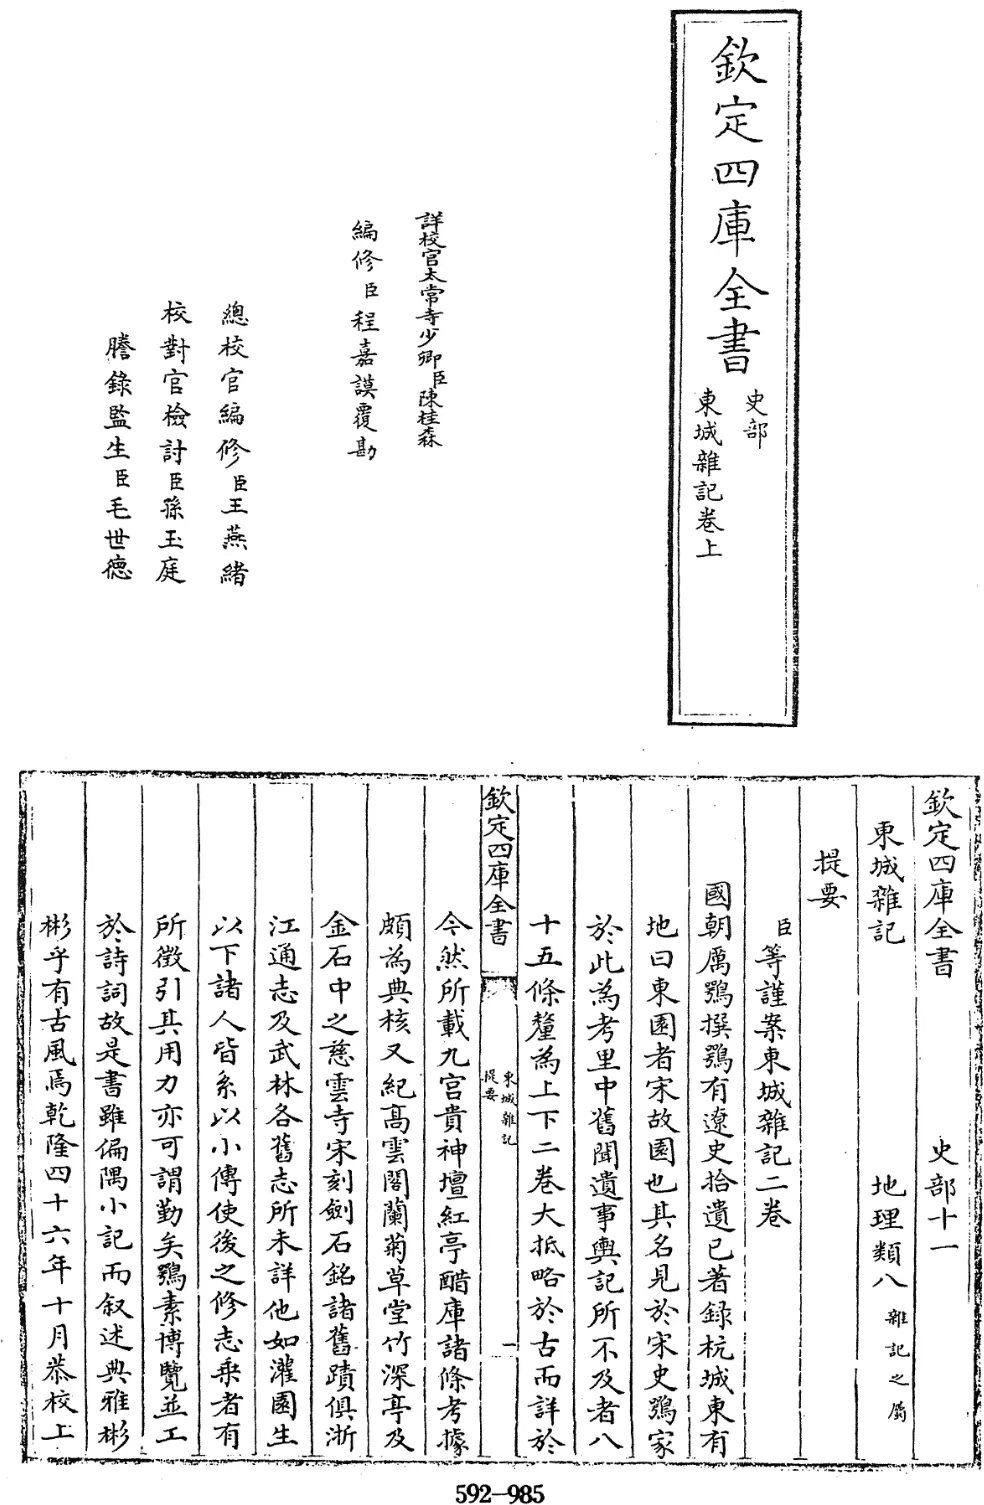 欽定四庫全書
史部
東城雜記卷上
詳校官太常寺少卿臣陳桂森
編修臣程嘉謨覆勘
總校官編修臣王燕緒
校對官檢討臣孫玉庭
謄錄監生臣毛世德
欽定四庫全書 史部十一
東城雜記 地理類八雜記之屬
提要
臣等謹案東城雜記二卷
國朝厲鶚撰鶚有遼史拾遺已著録杭城東有
地曰東園者宋故園也其名見於宋史鶚家
於此為考里中舊聞遺事輿記所不及者八
十五條釐為上下二卷大抵略於古而詳於
欽定四庫全書
東城雜記
提要
一
今然所載九宮貴神壇紅亭醋庫諸條考據
頗為典核又紀髙雲閣蘭菊草堂竹深亭及
金石中之慈雲寺宋刻劍石銘諸舊蹟俱浙
江通志及武林各舊志所未詳他如灌園生
以下諸人皆系以小傳使後之修志乗者有
所徵引其用力亦可謂勤矣鶚素博覽並工
於詩詞故是書雖偏隅小記而叙述典雅彬
彬乎有古風焉乾隆四十六年十月恭校上
592-985